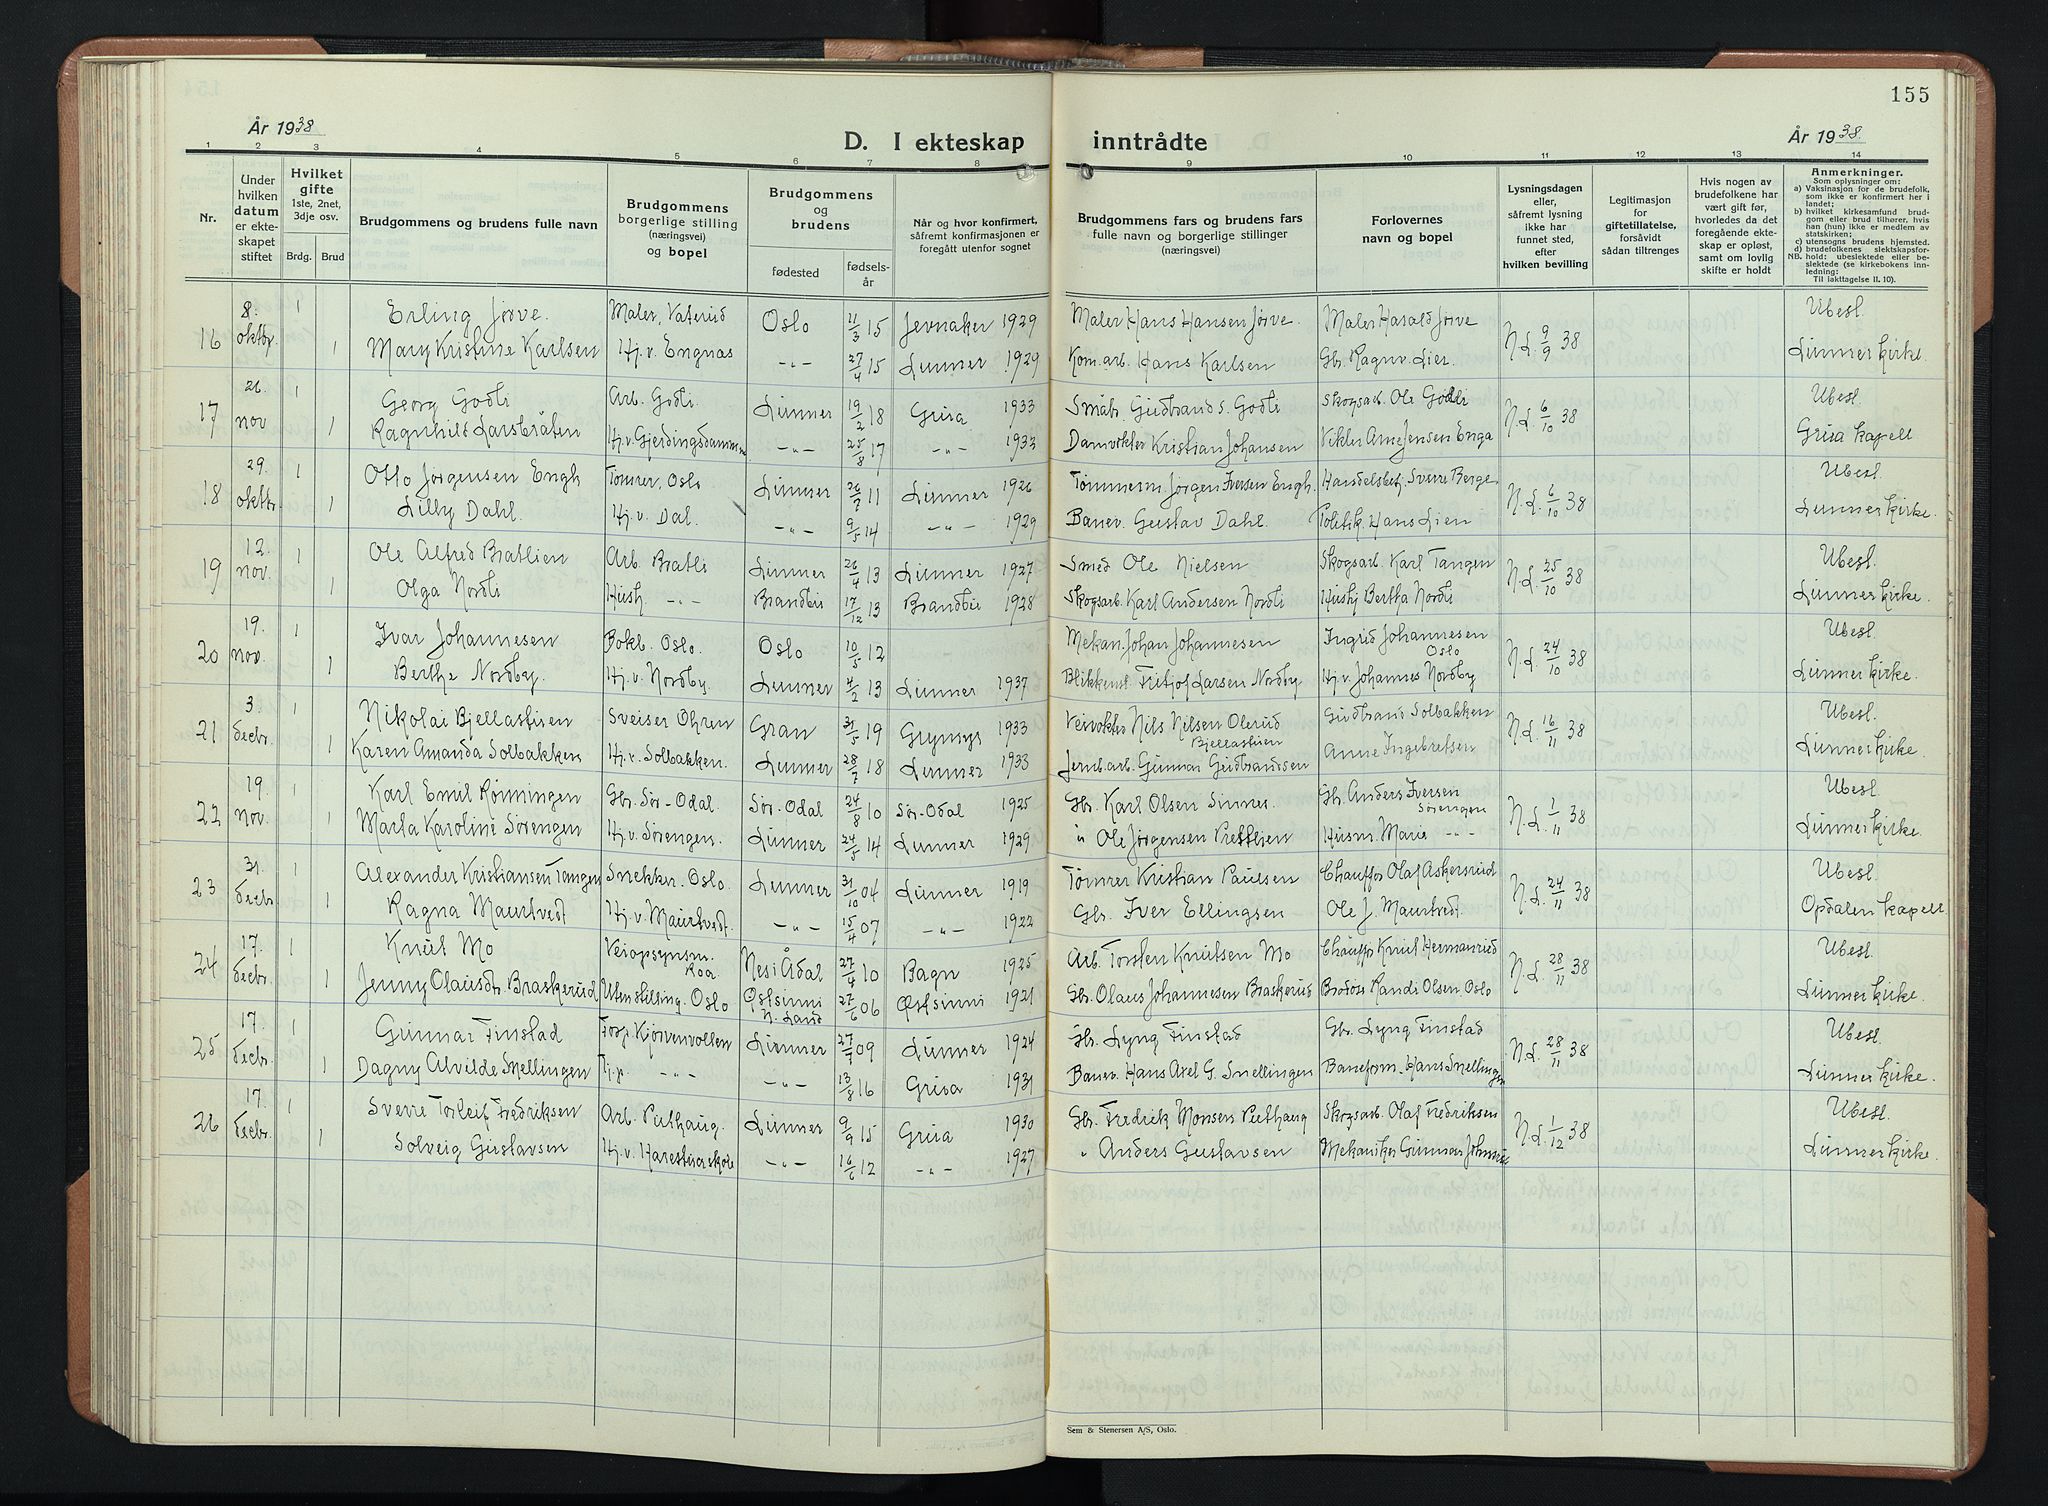 155
År 1938
D. I ekteskap inntrådte
År 1938.
1 2 3 4 5 6 7 8 9 10 11 12 13 14
Nr.
Under hvilken datum er ekteskapet stiftet
Hvilket gifte 1ste, 2net, 3dje osv.
Brdg. Brud
Brudgommens og brudens fulle navn
Brudgommens borgerlige stilling (næringsvei) og bopel
Brudgommens og brudens
fødested
fødselsår
Når og hvor konfirmert, såfremt konfirmasjonen er foregått utenfor sognet
Brudgommens fars og brudens fars fulle navn og borgerlige stillinger (næringsvei)
Forlovernes navn og bopel
Lysningsdagen eller, såfremt lysning ikke har funnet sted, efter hvilken bevilling
Legitimasjon for giftetillatelse, forsåvidt sådan tiltrenges
Hvis nogen av brudefolkene har vært gift før, hvorledes da det foregående ekteskap er opløst, samt om lovlig skifte er holdt
Anmerkninger.
Som oplysninger om:
a) Vaksinasjon for de brudefolk, som ikke er konfirmert her i landet;
b) hvilket kirkesamfund brudgom eller brud tilhører, hvis han (hun) ikke er medlem av statskirken;
c) utensogns brudens hjemsted.
d) brudefolkenes slektskapsforhold: ubeslektede eller beslektede (se kirkebokens innledning:
NB.
Til iakttagelse II. 10).
16 8. oktbr. 1 Erling Jørve. Maler, Vaterud Oslo 11/3 15 Jevnaker 1929 Maler Hans Hansen Jørve. Maler Harald Jørve N.L. 9/9 38 Ubesl.
1 Mary Kristine Karlsen Hj.v. Engnæs -"- 27/4 15 Lunner 1929 Kom.arb. Hans Karlsen Gbr. Ragnv. Lier. Lunner kirke.
17 nov 1 Georg Godli Arb. Godli Lunner 19/2 18 Grua 1933 Småbr. Gudbrand S. Godli Skogsarb. Ole Godli N.L. 6/10 38 Ubesl.
1 Ragnhild Larsbråten Hj.v. Gjerdingsdammen -"- 25/8 17 -"- 1933 Damvokter Kristian Johansen Vekter Arne Jensen Enga Grua kapell
18 29. oktbr. 1 Otto Jørgensen Engh Tømrer, Oslo Lunner 26/7 11 Lunner 1926 Tømmerm. Jørgen Iversen Engh. Handelsbetj. Sverre Berge N.L. 6/10 38 Ubesl.
1 Lilly Dahl. Hj.v. Dal. -"- 9/5 14 -"- 1929 Banev. Gustav Dahl. Politik. Hans Lien Lunner kirke.
19 12. nov. 1 Ole Alfred Bratlien Arb. Bratli Lunner 26/4 13 Lunner 1927 Smed Ole Nielsen Skogsarb. Karl Tangen N.L. 25/10 38 Ubesl.
1 Olga Nordli Hush. -"- Brandbu 17/12 13 Brandbu 1928 Skogsarb. Karl Andersen Nordli Hushj Bertha Nordli Lunner kirke.
20 19. nov. 1 Ivar Johannesen Bokb. Oslo. Oslo 10/5 12 Mekan. Johan Johannesen Ingrid Johannesen Oslo N.L. 24/10 38 Ubesl.
1 Berthe Nordby. Hj.v. Nordby. Lunner 4/2 13 Lunner 1937 Blikkensl. Fritjof Larsen Nordby. Hj.v Johannes Nordby Lunner kirke.
21 3. decbr. 1 Nikolai Bjellastuen Sveiser Ohren Gran 31/5 19 Grymyr 1933 Veivokter Nils Nilsen Olerud Bjellastuen Gudbrand Solbakken N.L. 16/11 38 Ubesl.
1 Karen Amanda Solbakken Hj.v. Solbakken. Lunner 28/7 18 Lunner 1933 Jernb.arb. Gunnar Gudbrandsen Anne Ingebretsen Lunner kirke
22 19. nov. 1 Karl Emil Rønningen Gbr. Sør-Odal. Sør-Odal 24/8 10 Sør-Odal 1925 Gbr. Karl Olsen Sinnes. Gb. Anders Iversen Sørengen N.L. 1/11 38 Ubesl.
1 Marta Karoline Sørengen Hj.v. Sørengen. Lunner 24/5 14 Lunner 1929 " Ole Jørgensen Prestlien Husm. Marie -"- Lunner kirke.
23 31. decbr. 1 Alexander Kristiansen Tangen Snekker. Oslo. Lunner 31/10 04 Lunner 1919 Tømrer Kristian Paulsen Chauffør Olaf Askersrud N.L. 24/11 38 Ubesl.
1 Ragna Maurtvedt Hj.v. Maurtvedt. -"- 15/4 07 -"- 1922 Gbr. Iver Ellingsen Ole J. Maurtvedt. Opdalen kapell
24 17. decbr. 1 Knut Mo Veiopsynsm. Roa Nes i Ådal 27/4 10 Bagn 1925 Arb. Torsten Knutsen Mo Chauffør Knut Hermanrud N.L. 28/11 38 Ubesl.
1 Jenny Olausdtr. Braskerud Uten stilling. Oslo Østsinni N. Land 27/6 06 Østsinni 1921 Gb. Olaus Johannesen Braskerud Randi Olsen, Oslo Lunner kirke.
25 17. decbr. 1 Gunnar Finstad Forp. Kjørvenvollen Lunner 27/7 09 Lunner 1924 Gb. Lyng Finstad Gbr. Lyng Finstad N.L. 28/11 38 Ubesl.
1 Dagny Alvilde Snellingen Tj.p. -"- -"- 13/8 16 Grua 1931 Banev. Hans Axel G. Snellingen Baneform. Hans Snellingen Lunner kirke.
26 17. decbr. 1 Sverre Torleif Fredriksen Arb. Puthaug. Lunner 9/9 15 Grua 1930 Gbr. Fredrik Monsen Puthaug Skogsarb. Olaf Fredriksen N.L. 1/12 38 Ubesl.
1 Solveig Gustavsen Hj.v. Harestua skole -"- 16/6 12 -"- 1927 " Anders Gustavsen Mekaniker Gunnar Lunner kirke.
Sem & Stenersen A/S, Oslo.